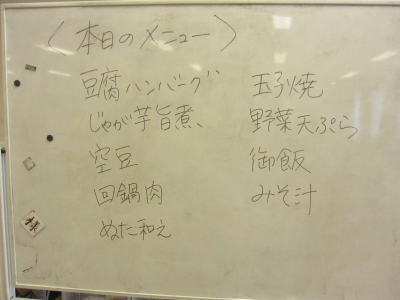 (本日のメニュー)
豆腐ハンバーグ
じゃが芋旨煮
空豆
回鍋肉
ぬた和え
玉子焼
野菜天ぷら
御飯
みそ汁
様